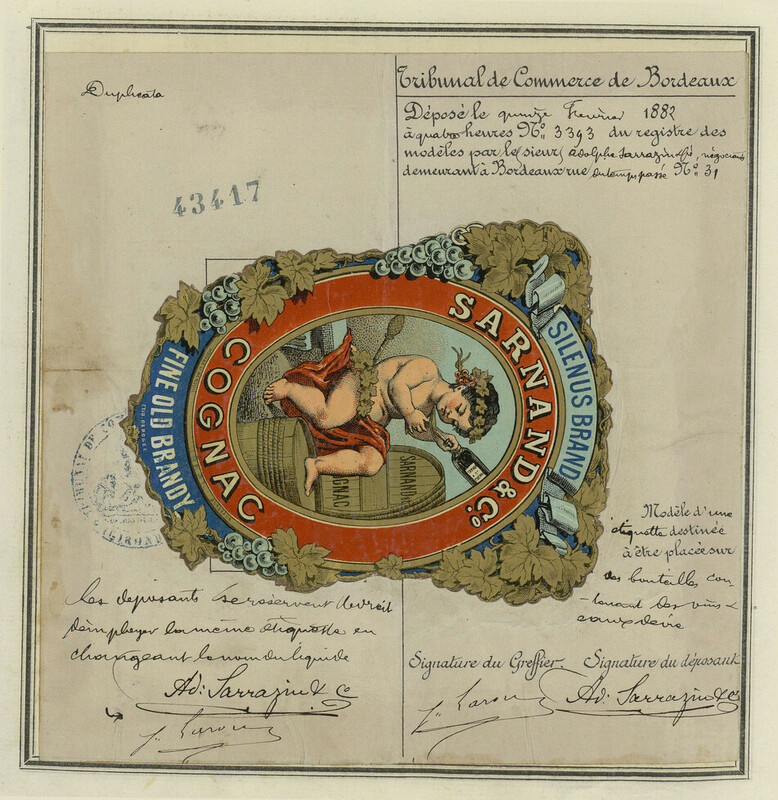 Duplicata
43417
Tribunal de Commerce de Bordeaux
Déposé le quinze Fevrier 1882
à quatre heures No. 3393 du registre des
modèles par le sieur Adolphe Sarrazin & Cie, négociant
demeurant à Bordeaux rue du temps passé No. 31
SARNAND & Co.
COGNAC
SILENUS BRAND
FINE OLD BRANDY
SARNAND &
COGNAC
TRIBUNAL DE CO
(GIRONDE)
Modèle d'une
étiquette destinée
à être placée sur
des bouteilles con-
-tenant des vins &
eaux de vie
Les déposants se réservent le droit
d'employer la même étiquette en
changeant le nom du liquide
Ad: Sarrazin & Co
Signature du Greffier. Signature du déposant
Ad: Sarrazin & Co